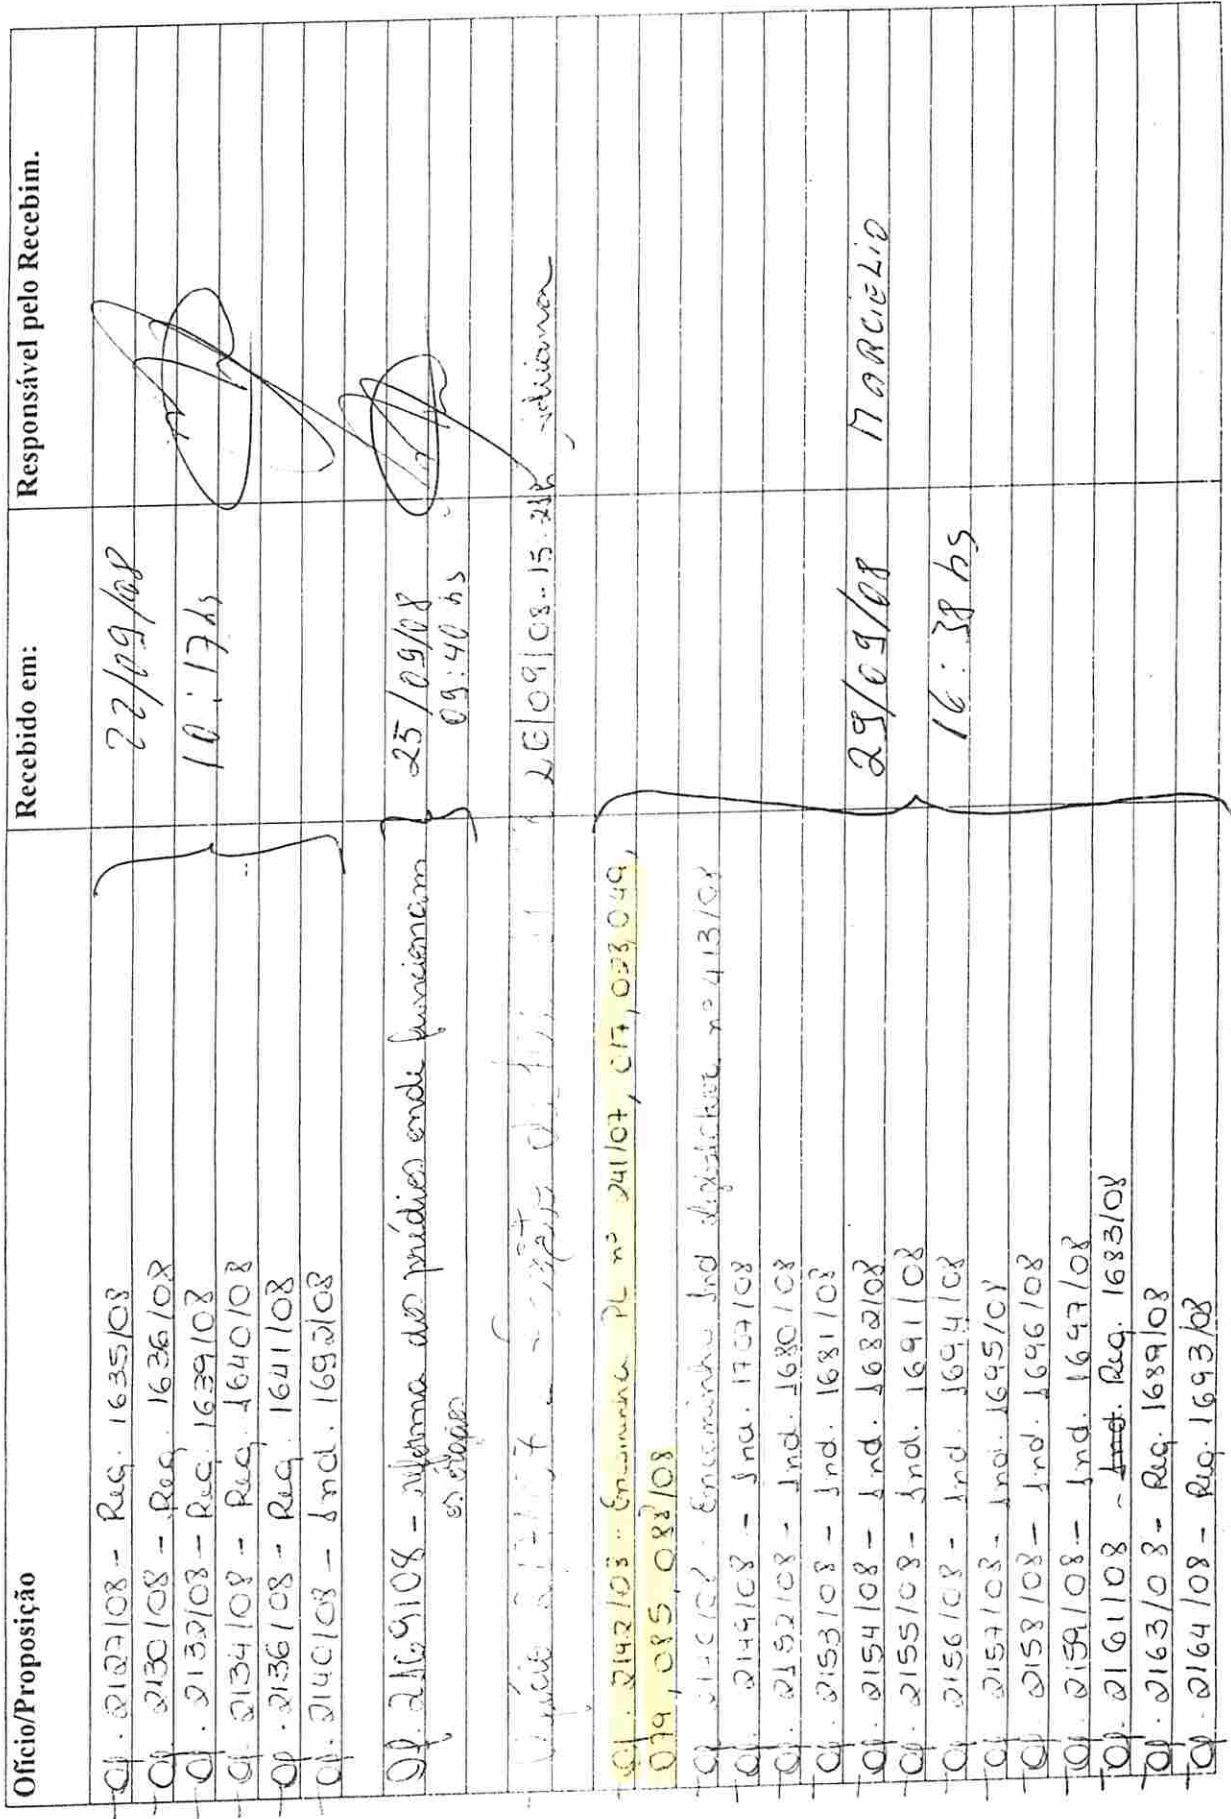 Ofício/Proposição Recebido em: Responsável pelo Recebim.
Of. 2127/08 - Req. 1635/08 22/09/08
Of. 2130/08 - Req. 1636/08
Of. 2132/08 - Req. 1639/08 10:17hs
Of. 2134/08 - Req. 1640/08
Of. 2136/08 - Req. 1641/08
Of. 2140/08 - Ind. 1692/08
Of. 2169/08 - reforma dos prédios onde funcionam 25/09/08
09:40 hs
26/09/08 - 15:21h Adriana
Of. 2142/08 - Encaminha PL nº 241/07, 017, 023, 049,
079, 085, 088/08
Of. Encaminha Ind legislativa nº 413/08
Of. 2149/08 - Ind. 1707/08
Of. 2152/08 - Ind. 1680/08
Of. 2153/08 - Ind. 1681/08
Of. 2154/08 - Ind. 1682/08 29/09/08 MARCiELiO
Of. 2155/08 - Ind. 1691/08
Of. 2156/08 - Ind. 1694/08 16:38 hs
Of. 2157/08 - Ind. 1695/08
Of. 2158/08 - Ind. 1696/08
Of. 2159/08 - Ind. 1697/08
Of. 2161/08 - Ind. Req. 1683/08
Of. 2163/08 - Req. 1689/08
Of. 2164/08 - Req. 1693/08